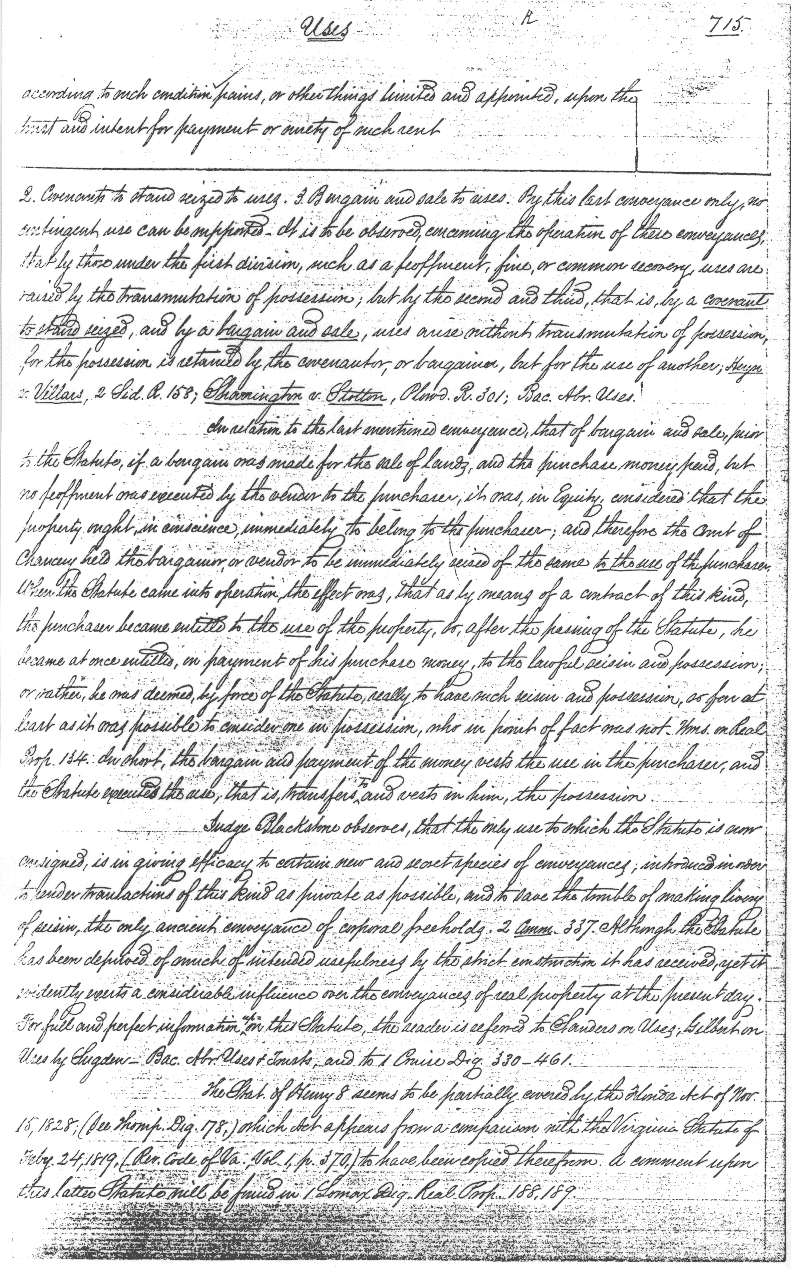 Uses
R
715.
according to such condition, pains, or other things limited and appointed, upon the
trust and intent for payment or surety of such rent
2. Covenants to stand seized to uses. 3. Bargain and sale to uses. By this last conveyance only, no
contingent use can be supported. It is to be observed, concerning the operation of these conveyances,
that by those under the first division, such as a feoffment, fine, or common recovery, uses are
raised by the transmutation of possession; but by the second and third, that is, by a covenant
to stand seized, and by a bargain and sale, uses arise without transmutation of possession,
for the possession is retained by the covenantor, or bargainer, but for the use of another; Heyn
v. Villars, 2 Sid. R. 158; Sharrington v. Stotton, Plowd. R. 301; Bac. Abr. Uses.
In relation to the last mentioned conveyance, that of bargain and sale, prior
to the Statute, if a bargain was made for the sale of lands, and the purchase money paid, but
no feoffment was executed by the vendor to the purchaser, it was, in Equity, considered that the
property ought, in conscience, immediately to belong to the purchaser; and therefore the Court of
Chancery held the bargainor or vendor to be immediately seised of the same to the use of the purchaser.
When the Statute came into operation, the effect was, that as by means of a contract of this kind,
the purchaser became entitled to the use of the property, so, after the passing of the Statute, he
became at once entitled, on payment of his purchase money, to the lawful seisin and possession;
or rather, he was deemed, by force of the Statute, really to have such seisin and possession, so far at
least as it was possible to consider one in possession, who in point of fact was not. Wms. on Real
Prop. 154. In short, the bargain and payment of the money vests the use in the purchaser, and
the Statute executed the use, that is, transfers to and vests in him, the possession.
Judge Blackstone observes, that the only use to which the Statute is now
consigned, is in giving efficacy to certain new and secret species of conveyances; introduced in order
to render transactions of this kind as private as possible, and to save the trouble of making livery
of seisin, the only ancient conveyance of corporal freeholds. 2 Comm. 337. Although the Statute
has been deprived of much of intended usefulness by the strict construction it has received, yet it
evidently exerts a considerable influence over the conveyances of real property at the present day.
For full and perfect information upon this Statute, the reader is referred to Sanders on Uses; Gilbert on
Uses by Sugden - Bac. Abr. Uses & Trusts, and to 1 Cruise Dig. 330-461.
The Stat. of Henry 8 seems to be partially covered by the Florida Act of Nov.
15, 1828, (See Thomp. Dig. 178,) which Act appears from a comparison with the Virginia Statute of
Feby. 24, 1819, (Rev. Code of Va., Vol. 1, p. 370,) to have been copied therefrom. A comment upon
this latter Statute will be found in 1 Lomax Dig. Real Prop. 188, 189.